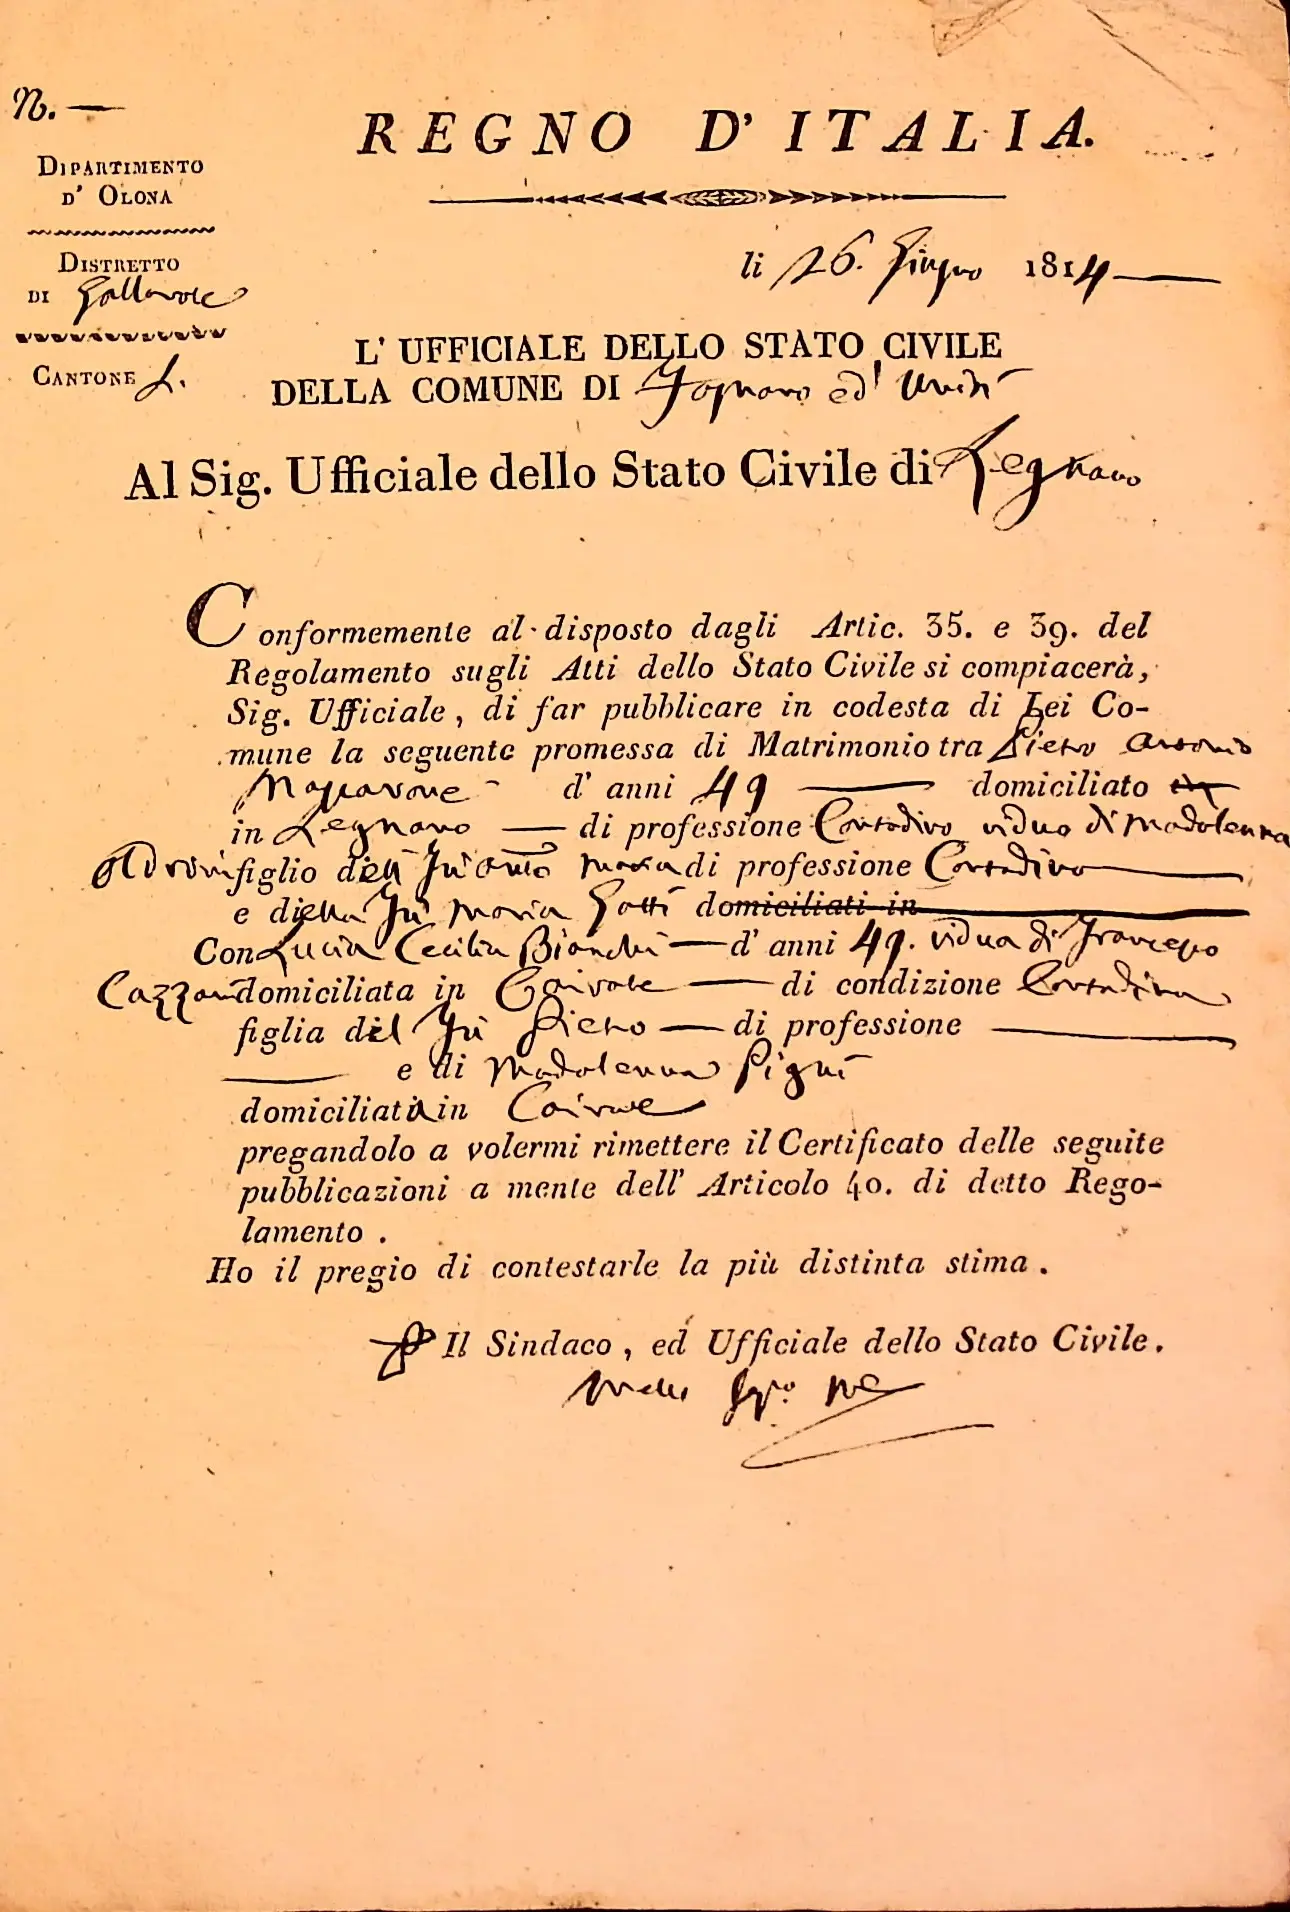 N. —
REGNO D'ITALIA.
DIPARTIMENTO
D' OLONA
DISTRETTO
DI Gallarate
CANTONE I.
li 26. Giugno 1814
L' UFFICIALE DELLO STATO CIVILE
DELLA COMUNE DI Fagnano ed Uniti
Al Sig. Ufficiale dello Stato Civile di Legnano
Conformemente al disposto dagli Artic. 35. e 39. del
Regolamento sugli Atti dello Stato Civile si compiacerà,
Sig. Ufficiale, di far pubblicare in codesta di Lei Co-
mune la seguente promessa di Matrimonio tra Pietro Antonio
d' anni 49 — domiciliato
in Legnano — di professione Contadino viduo di Madalenna
figlio dell Fu Maria di professione Contadino
e della Fu Maria Gatti domiciliati in
Con Lucia Cecilia Bianchi — d' anni 49. vidua di Francesco
domiciliata in Cairate — di condizione Contadina
figlia del Fu Pietro — di professione —
— e di Madalenna Pigni
domiciliati in Cairate
pregandolo a volermi rimettere il Certificato delle seguite
pubblicazioni a mente dell' Articolo 40. di detto Rego-
lamento.
Ho il pregio di contestarle la più distinta stima.
Il Sindaco, ed Ufficiale dello Stato Civile.